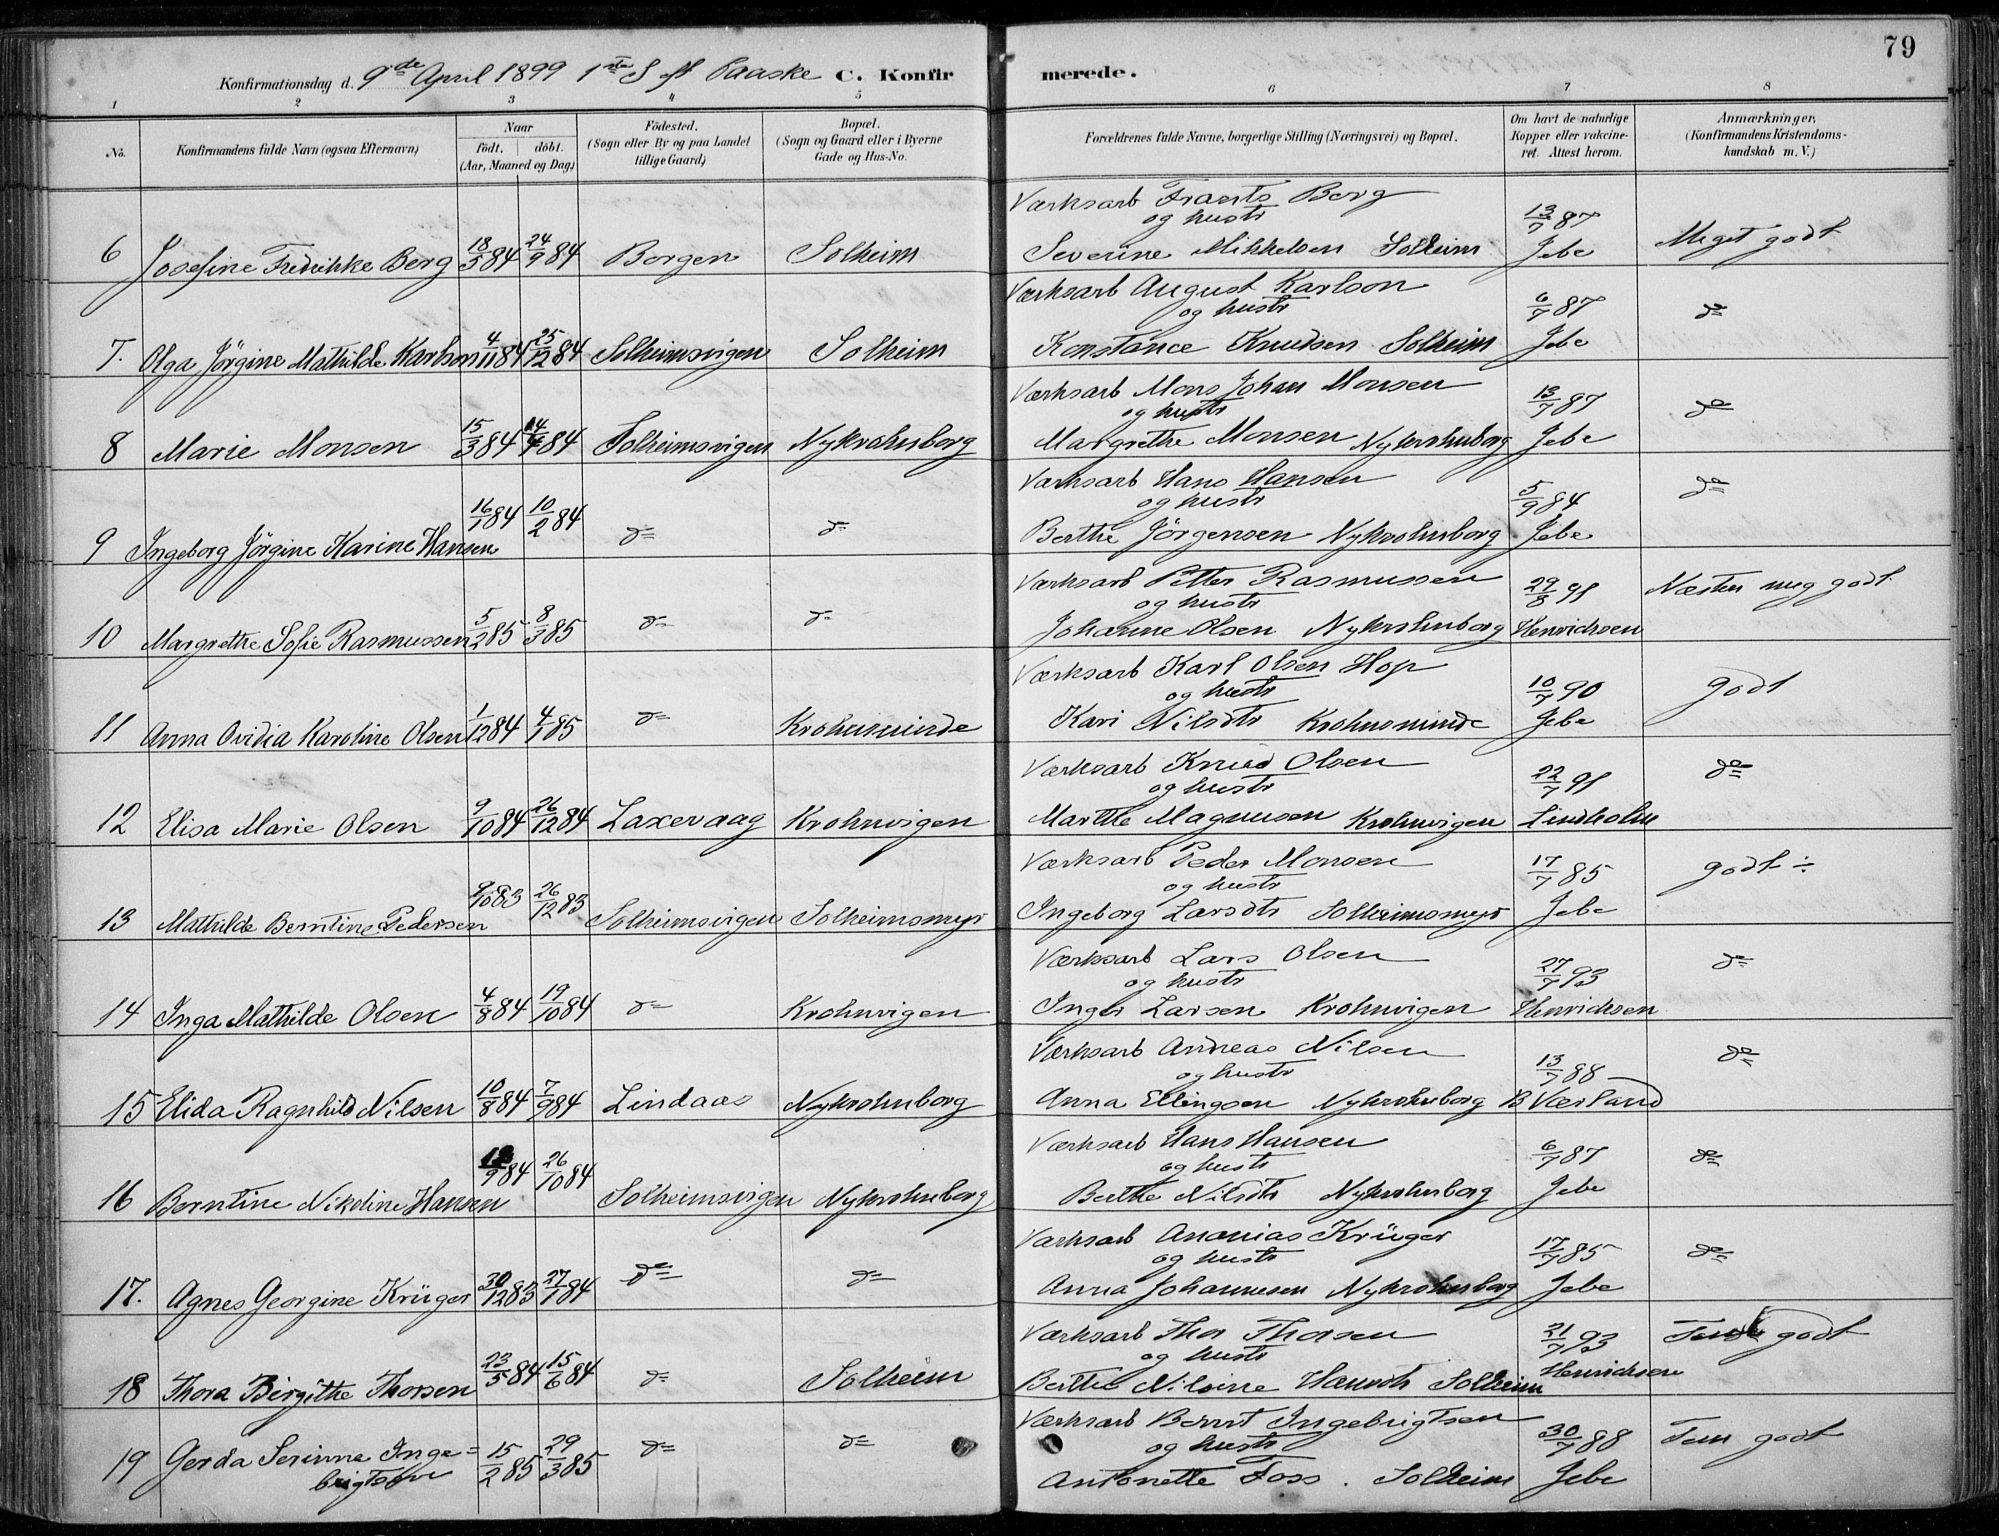 79
Konfirmationsdag d. 9de April 1899 1ste S. f. Paaske C. Konfirmerede.
1 2 3 4 5 6 7 8
No. Konfirmandens fulde Navn (ogsaa Efternavn) Naar Födt. döbt. (Aar, Maaned og Dag) Födested. (Sogn eller By og paa Landet tillige Gaard) Bopæl. (Sogn og Gaard eller i Byerne Gade og Hus-No. Forældrenes fulde Navne, borgerlige Stilling (Næringsvei) og Bopæl. Om havt de naturlige Kopper eller vaccineret. Attest herom. Anmærkninger, (Konfirmandens Kristendomskundskab m. V.)
Værksarb Frants Berg
og hustr 13/7 87
6 Josefine Fredrikke Berg 18/5 84 24/9 84 Borgen Solheim Severine Mikkelsen Solheim Jebe Meget godt
Værksarb August Karlson
og hustr 6/7 87 do
7. Olga Jörgine Mathilde Karlson 4/11 84 25/12 84 Solheimsvigen Solheim Konstance Knudsen Solheim Jebe
Værksarb Mons Johan Monsen
og hustr 13/7 87 do
8 Marie Monsen 15/3 84 14/4 84 Solheimsvigen Nykrohnborg Margrethe Monsen Nykrohnborg Jebe
Værksarb Hans Hansen
og hustr 5/9 84 do
9 Ingeborg Jörgine Karine Hansen 16/1 84 10/2 84 do do Berthe Jörgensen Nykrohnborg Jebe
Værksarb Petter Rasmussen
og hustr 29/8 98 Næsten meg godt
10 Margrethe Sofie Rasmussen 5/2 85 8/3 85 do do Johanne Olsen Nykrohnborg Henrichsen
Værksarb Karl Olsen Hop
og hustr 10/7 90 godt
11 Anna Ovidia Karoline Olsen 1/12 84 4/1 85 do Krohnsminde Kari Nilsdtr Krohnsminde Jebe
Værksarb Knud Olsen
og hustr 22/7 98 do
12 Elisa Marie Olsen 9/10 84 26/12 84 Laxevaag Krohnvigen Marthe Magnusen Krohnvigen Lindholm
Værksarb Peder Monsen
og hustr 17/7 85 godt ÷
13 Mathilde Berntine Pedersen 9/10 83 26/12 83 Solheimsvigen Solheimsmyr Ingeborg Larsdtr Solheimsmyr Jebe
Værksarb Lars Olsen
og hustr 27/7 93 do
14 Inga Mathilde Olsen 4/8 84 19/10 84 do Krohnvigen Inger Larsen Krohnvigen Henrichsen
Værksarb Andreas Nilsen
og hustr 13/7 88 do
15 Elida Ragnhild Nilsen 10/8 84 7/9 84 Lindaas Nykrohnborg Anna Ellingsen Nykrohnborg B Værland
Værksarb Hans Hansen
og hustr 6/7 87 do
16 Berntine Nikoline Hansen /9 84 26/10 84 Solheimsvigen Nykrohnborg Berthe Nilsdtr Nykrohnborg Jebe
Værksarb Ananias Krüger
og hustr 17/7 85 do
17. Agnes Georgine Krüger 30/12 83 27/1 84 do do Anna Johannesen Nykrohnborg Jebe
Værksarb Thor Thorsen
og hustr 21/7 93 godt
18 Thora Birgithe Thorsen 23/5 84 15/6 84 do Solheim Berthe Nilsine Hansdtr Solheim Henrichsen
Værksarb Bernt Ingebrigtsen
og hustr 30/7 88 Tem godt
19 Gerda Serinne Inge=
brigtsen 15/2 85 29/3 85 do do Antonette Foss. Solheim Jebe